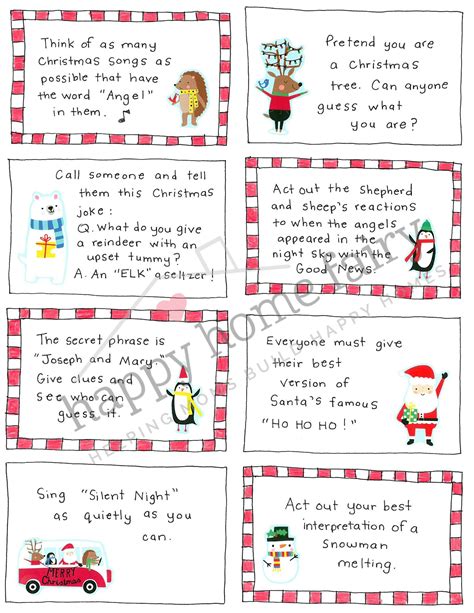 Think of as many
Christmas songs as
possible that have
the word "Angel"
in them.
Pretend you are
a Christmas
tree. Can anyone
guess what
you are?
Call someone and tell
them this Christmas
joke:
Q. What do you give
a reindeer with an
upset tummy?
A. An "ELK" a seltzer!
Act out the Shepherd
and sheep's reactions
to when the angels
appeared in the
night sky with the
Good News.
The secret phrase is
"Joseph and Mary."
Give clues and
see who can
guess it.
Everyone must give
their best
version of
Santa's famous
"HO HO HO!"
Sing "Silent Night"
as quietly as you
can.
MERRY
Christmas
Act out your best
interpretation of a
Snowman
melting.
happy home fairy
HELPING MOMS BUILD HAPPY HOMES